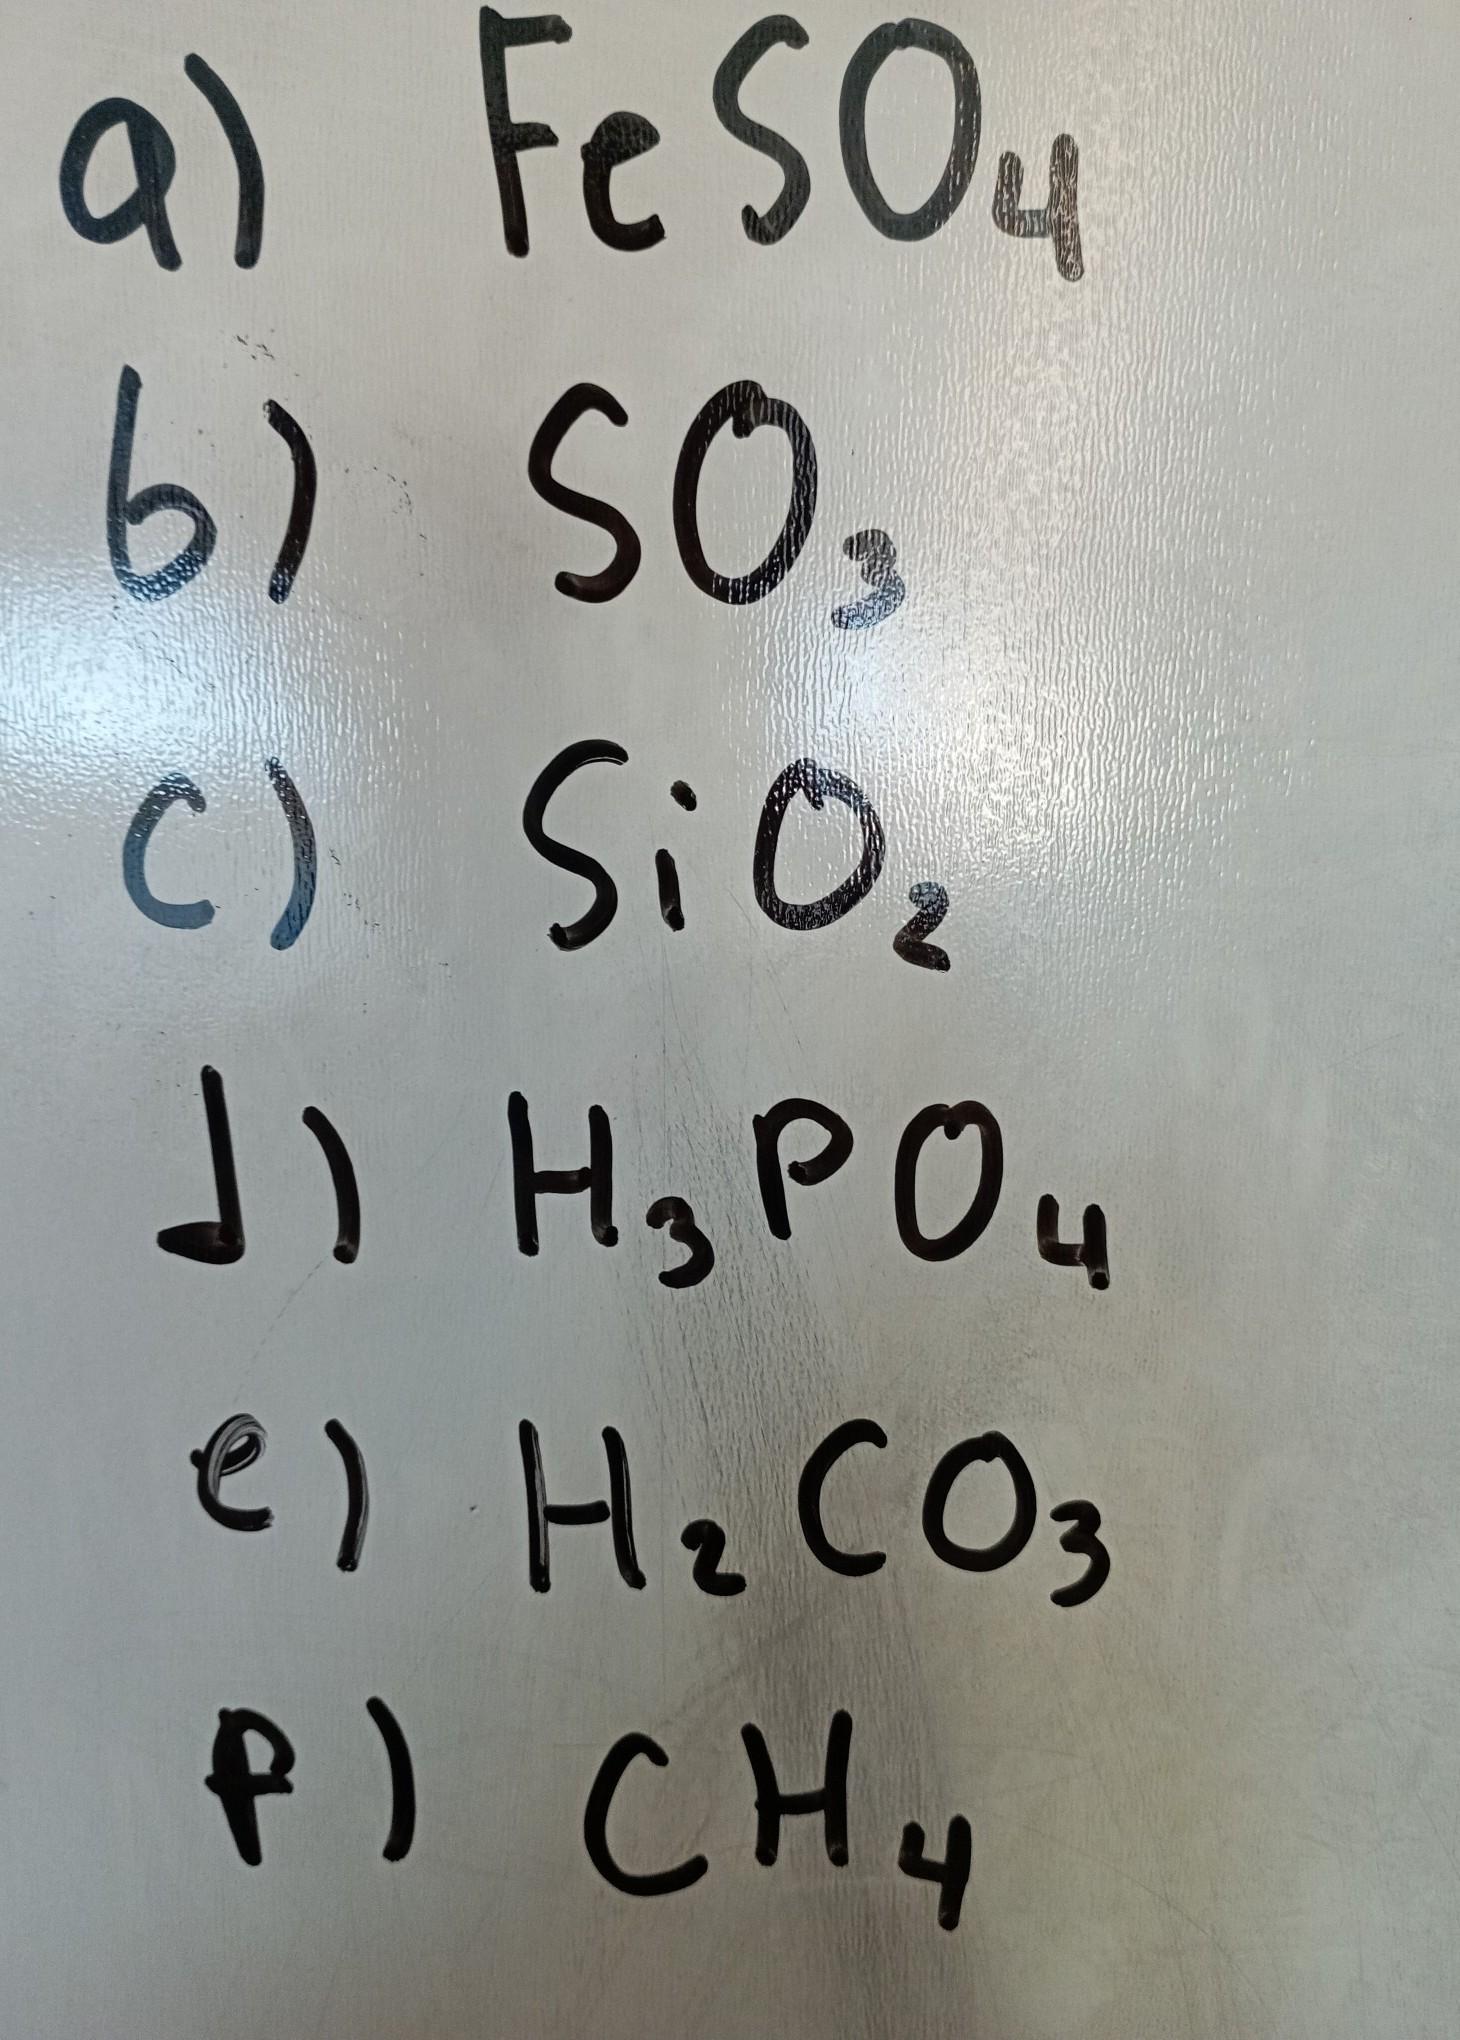 a) FeSO₄
b) SO₃
c) SiO₂
d) H₃PO₄
e) H₂CO₃
f) CH₄